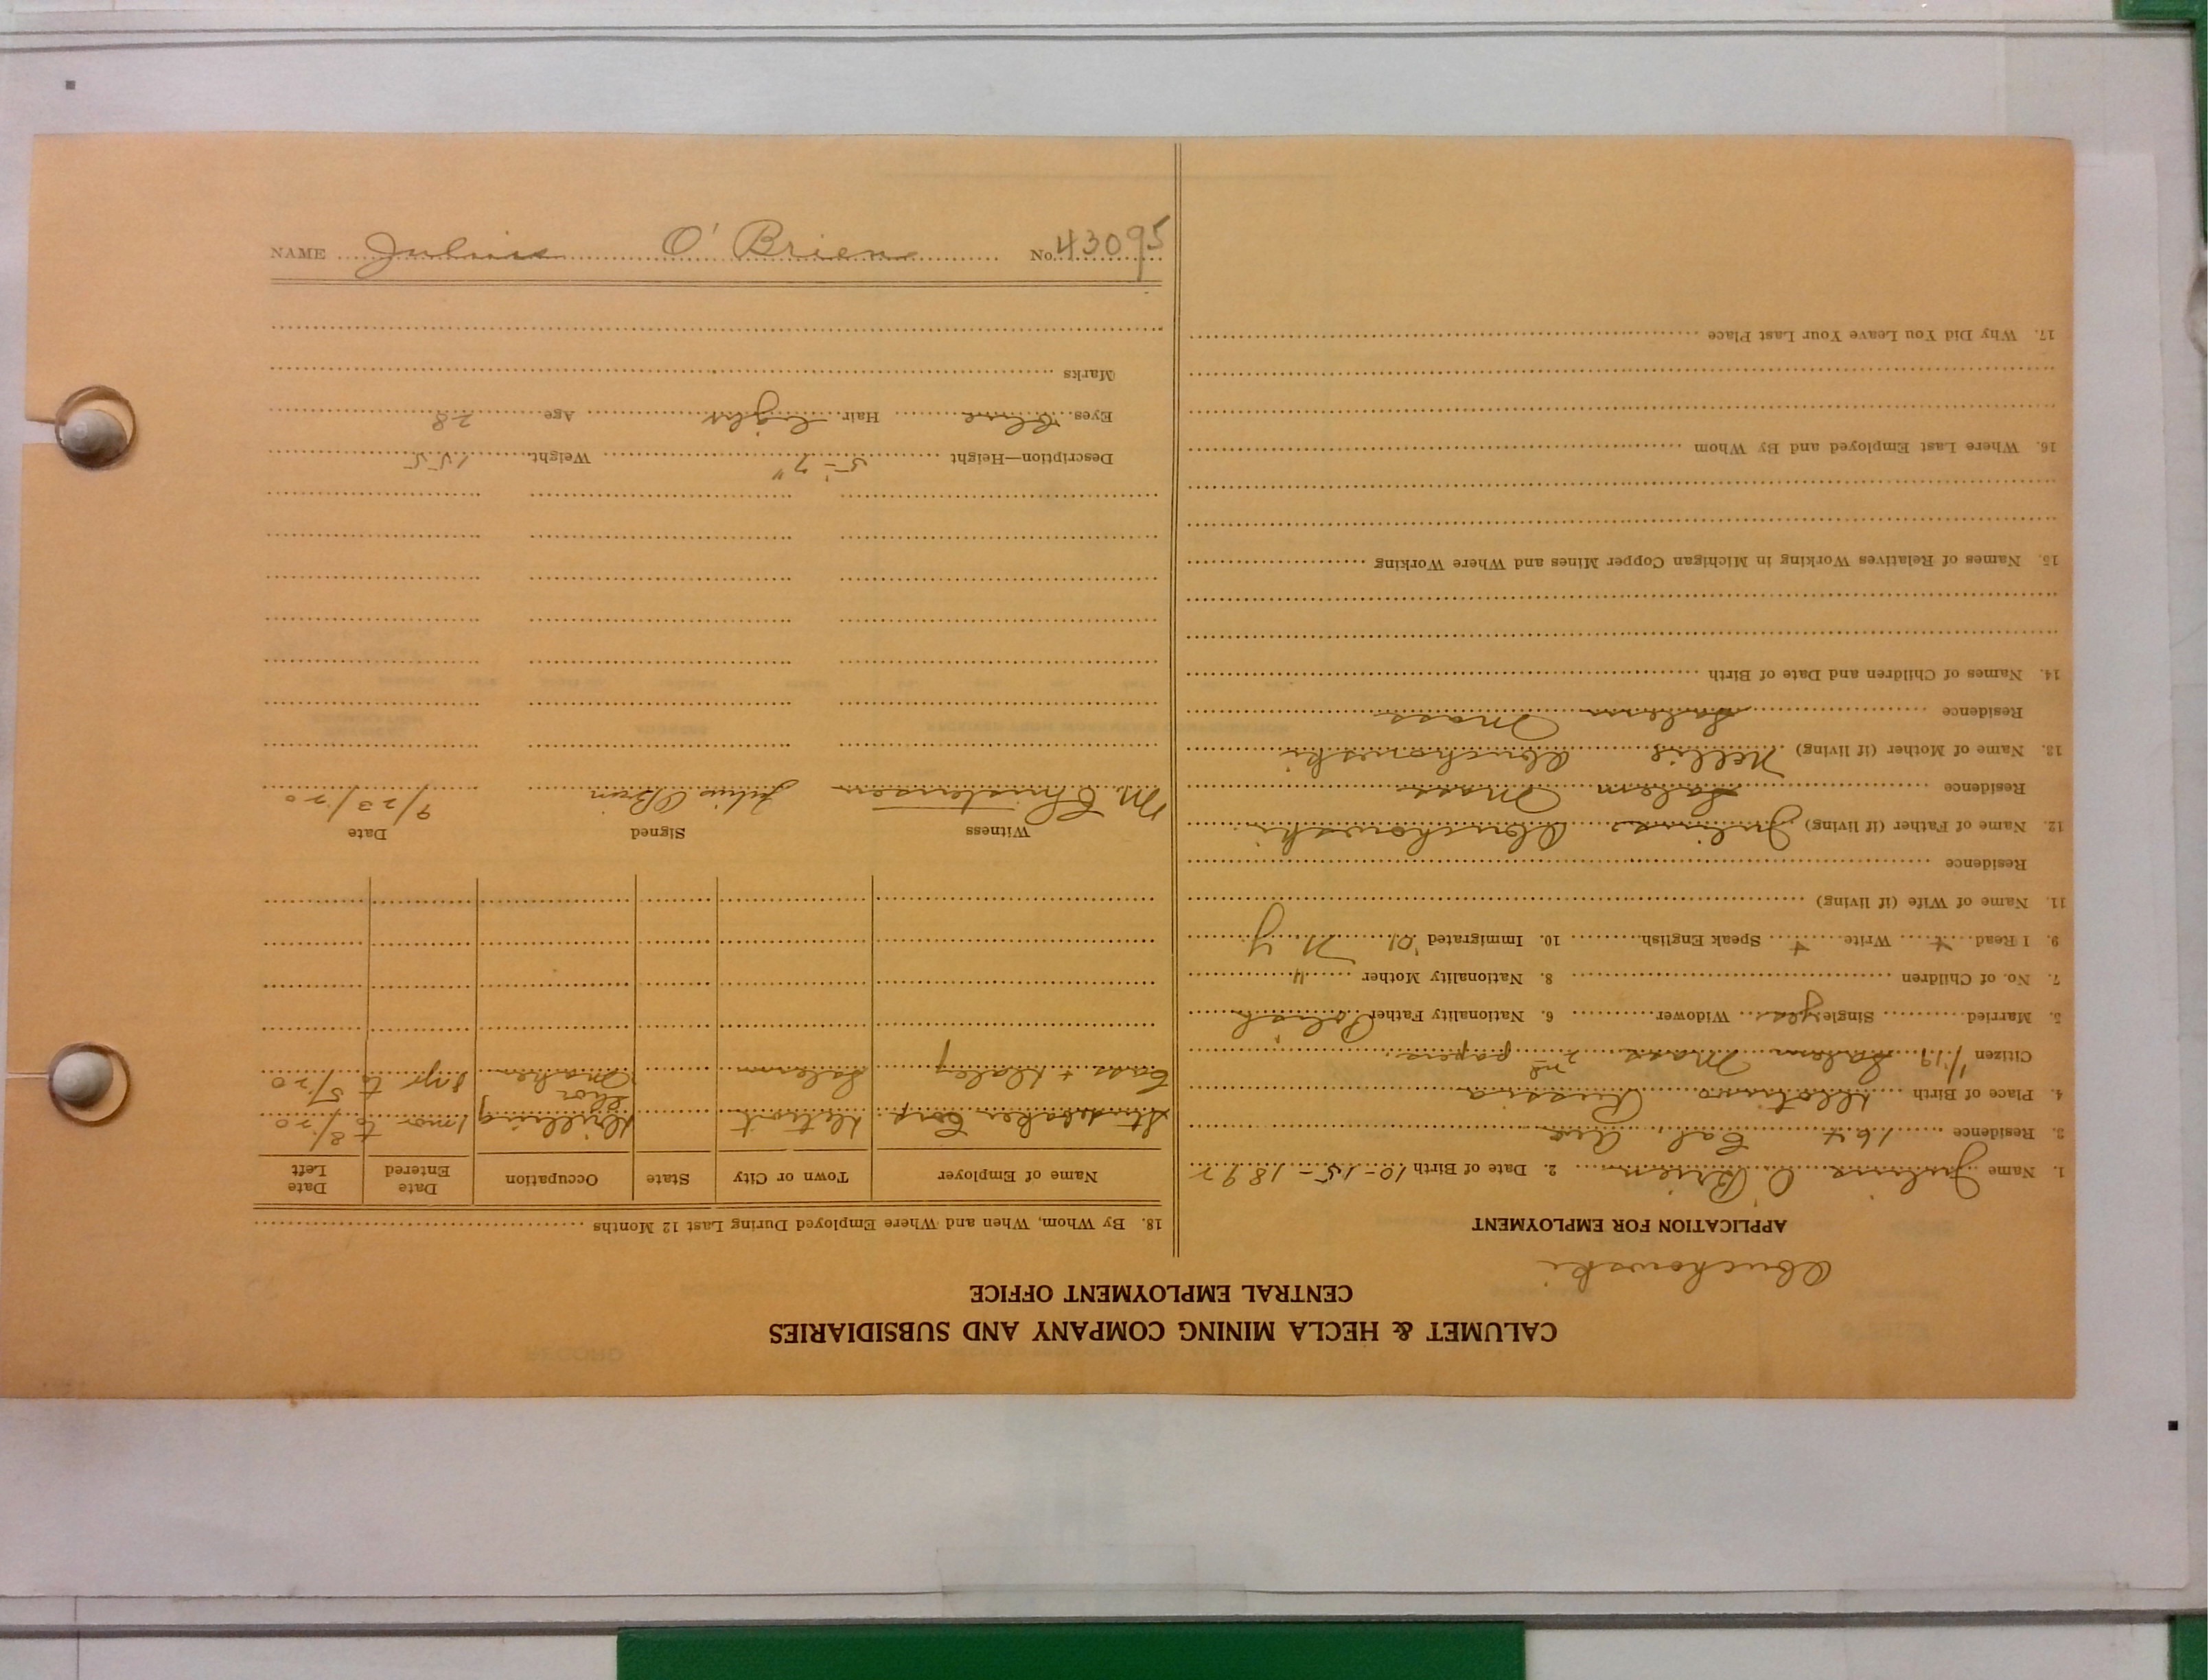 CALUMET & HECLA MINING COMPANY AND SUBSIDIARIES
CENTRAL EMPLOYMENT OFFICE
Abuchowski
APPLICATION FOR EMPLOYMENT
1. Name Julius O'Brien 2. Date of Birth 10-15-1892
3. Residence 164 Cal. Ave
4. Place of Birth Russia
Citizen 1/19 Salem Mass 2nd papers
5. Married Single yes Widower 6. Nationality Father Polish
7. No. of Children 8. Nationality Mother "
9. I Read + Write + Speak English 10. Immigrated '01 N Y
11. Name of Wife (if living)
Residence
12. Name of Father (if living) Julius Abuchowski
Residence Salem Mass
13. Name of Mother (if living) Nellie Abuchowski
Residence Salem Mass
14. Names of Children and Date of Birth
15. Names of Relatives Working in Michigan Copper Mines and Where Working
16. Where Last Employed and By Whom
17. Why Did You Leave Your Last Place
18. By Whom, When and Where Employed During Last 12 Months
Name of Employer Town or City State Occupation Date Entered Date Left
Studebaker Corp Detroit Drilling 1 mor to 8/20
Cass + Daley Salem Shoe Maker 8 yr to 5/20
Witness Signed Date
M. Christensen Julius O'Brien 9/23/20
Description—Height 5'-7" Weight 155
Eyes Blue Hair Light Age 28
Marks
NAME Julius O'Brien No. 43095